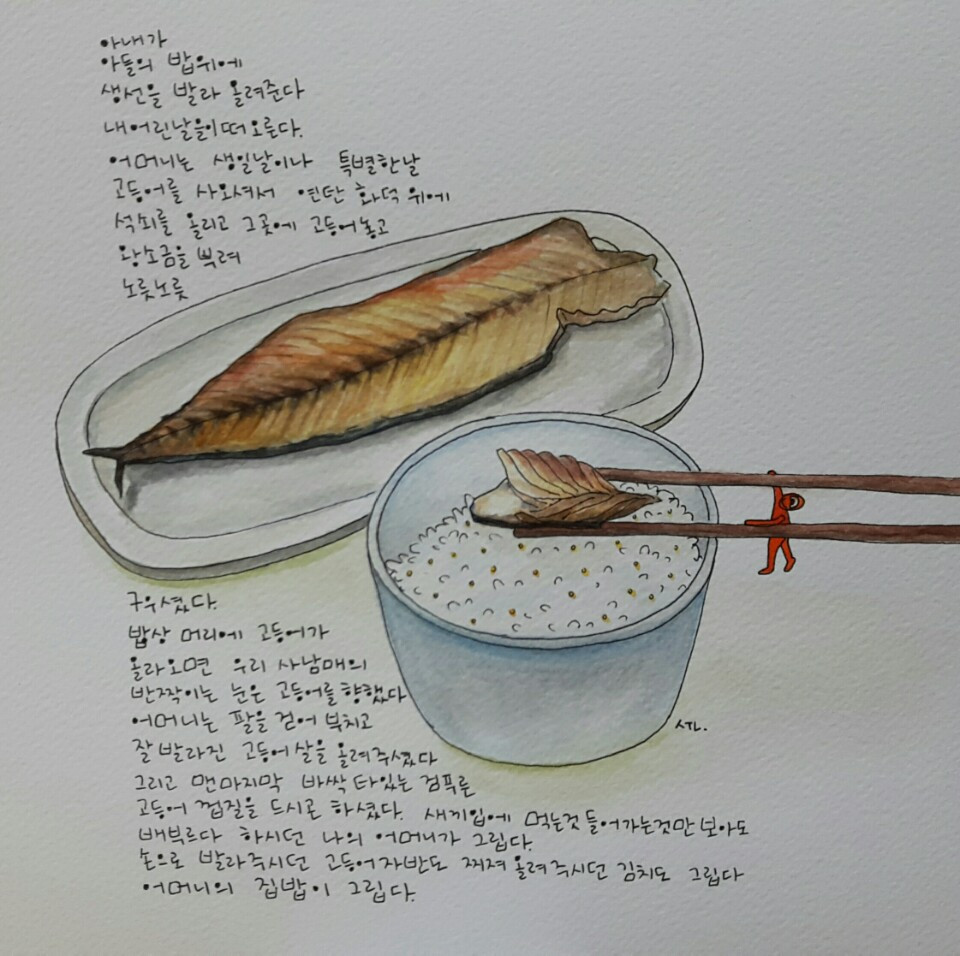 아내가
아들의 밥위에
생선을 발라 올려준다
내어린날들이떠오른다.
어머니는 생일날이나 특별한날
고등어를 사오셔서 연탄 화덕 위에
석쇠를 올리고 그곳에 고등어놓고
왕소금을 뿌려
노릇노릇
구우셨다.
밥상 머리에 고등어가
올라오면 우리 사남매의
반짝이는 눈은 고등어를 향했다
어머니는 팔을 걷어 부치고
잘발라진 고등어살을 올려주셨다
그리고 맨마지막 바싹타있는 검푸른
고등어 껍질을 드시곤 하셨다. 새끼입에 먹는것 들어가는것만 보아도
배부르다 하시던 나의 어머니가 그립다.
손으로 발라주시던 고등어자반도 찌져 올려주시던 김치도 그립다
어머니의 집밥이 그립다.